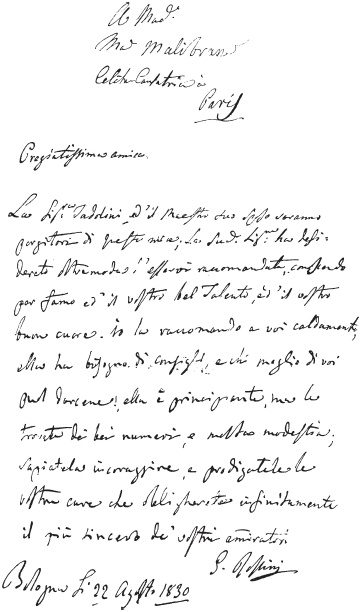 A Mad.e
Ma. Malibran
Celebre Cantatrice à
Paris
Pregiatissima amica.
La Sig.ra Taddini, ed il Maestro suo sposo saranno
porgitori di questa mia; La Sud.a Sig.ra ha desi-
derato oltremodo l'esservi raccomandata, conoscendo
per fama ed il vostro bel Talento, ed il vostro
buon cuore. Io la raccomando a voi caldamente,
ella ha bisogno di consigli, e chi meglio di voi
può darcene! ella è principiante, ma la
trovate dei bei numeri, e molta modestia;
sapiatela incoraggire, e prodigatele le
vostre cure che obligherete infinitamente
il più sincero de' vostri amiratori
G. Rossini
Bologna Li 22 Agosto 1830